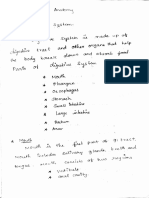 Anatomy
System
System is made up of
digestive tract and other organs that help
the body break down and absorb food
Parts of digestive system
* Mouth
* Pharynx
* Oesophagus
* Stomach
* Small
* Large intestine
* Rectum
* Anus
* Mouth
Mouth is the first part of
mouth include salivary glands, teeth and
tongue mouth consists of two regions
* vestibule
* oral cavity